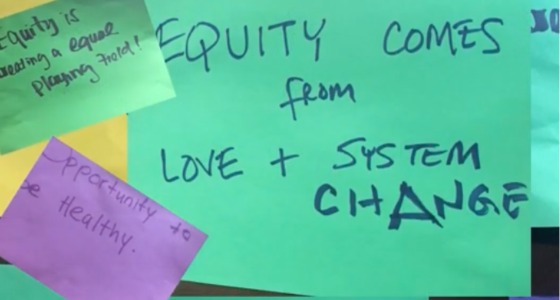 Equity is
creating a equal
playing field!
EQUITY COMES
from
LOVE + SYSTEM
CHANGE
Opportunity to
be Healthy.